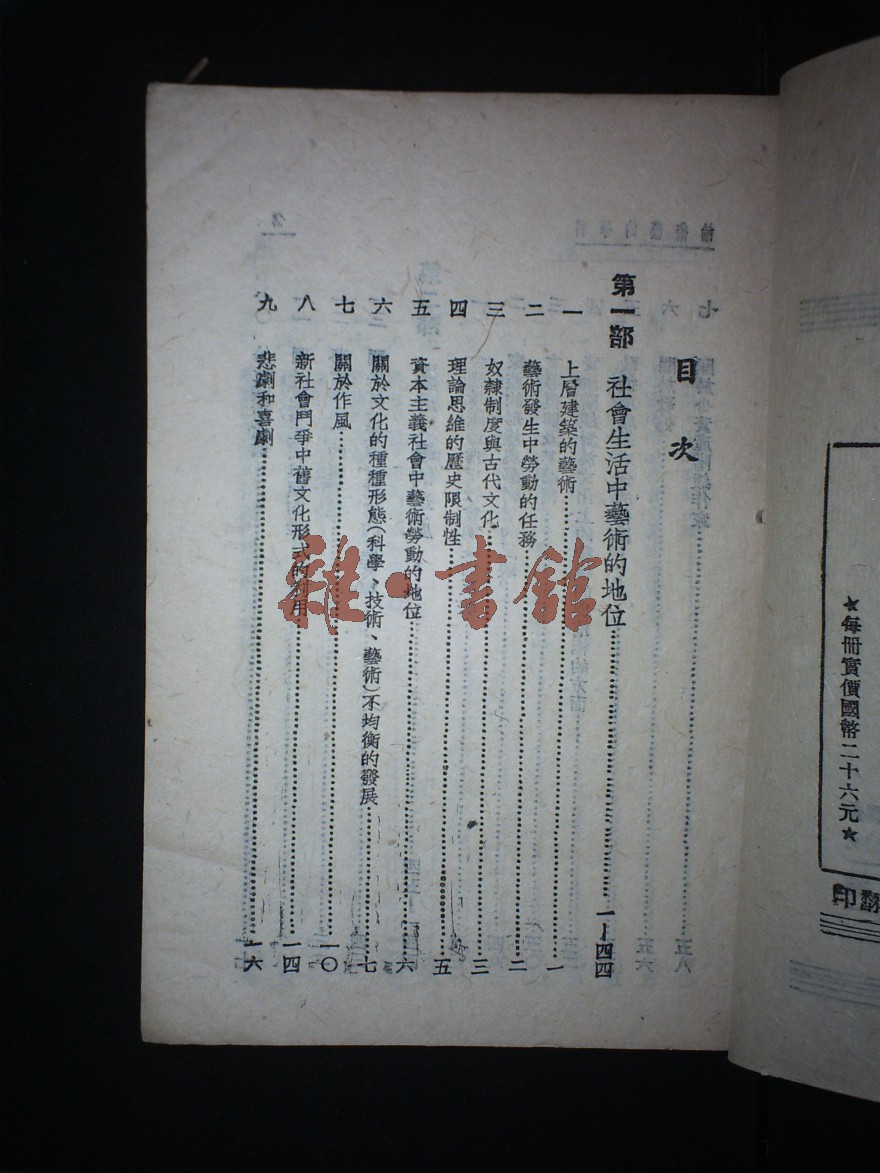 ★每冊實價國幣二十六元★
翻印
目次
第一部 社會生活中藝術的地位……一—四四
一 上層建築的藝術……一
二 藝術發生中勞動的任務……二
三 奴隸制度與古代文化……三
四 理論思維的歷史限制性……五
五 資本主義社會中藝術勞動的地位……六
六 關於文化的種種形態(科學、技術、藝術)不均衡的發展……七
七 關於作風……一〇
八 新社會鬥爭中舊文化形式的利用……一四
九 悲劇和喜劇……一六
雜·書館